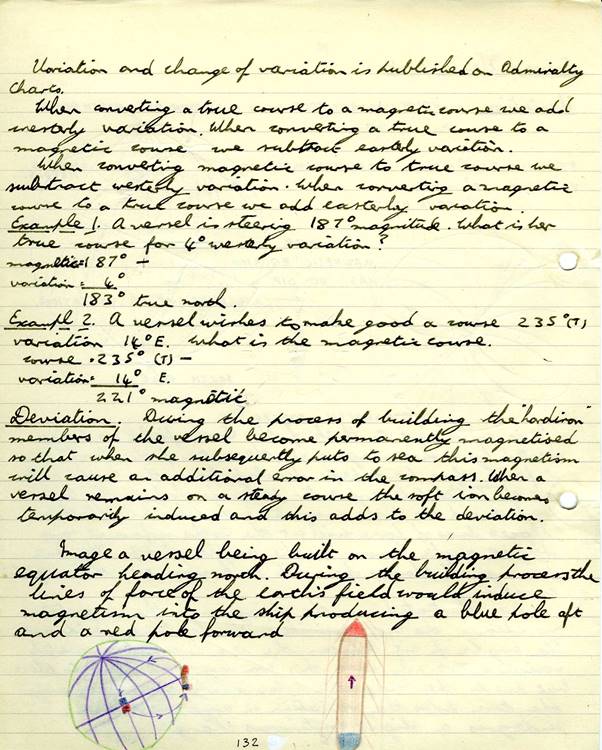 Variation and change of variation is published on Admiralty
Charts.
When converting a true course to a magnetic course we add
westerly variation. When converting a true course to a
magnetic course we subtract easterly variation.
When converting magnetic course to true course we
subtract westerly variation. When converting a magnetic
course to a true course we add easterly variation
Example 1. A vessel is steering 187° magnitude. What is her
true course for 4° westerly variation?
magnetic=187° +
variation= 4°
183° true north.
Example 2. A vessel wishes to make good a course 235° (T)
variation 14° E. What is the magnetic course.
course = 235° (T) -
variation= 14° E.
221° magnetic
Deviation. During the process of building the "hard iron"
members of the vessel become permanently magnetised
so that when she subsequently puts to sea this magnetism
will cause an additional error in the compass. When a
vessel remains on a steady course the soft iron becomes
temporarily induced and this adds to the deviation.
Image a vessel being built on the magnetic
equator heading north. During the building process the
lines of force of the earth's field would induce
magnetism into the ship producing a blue pole aft
and a red pole forward
132